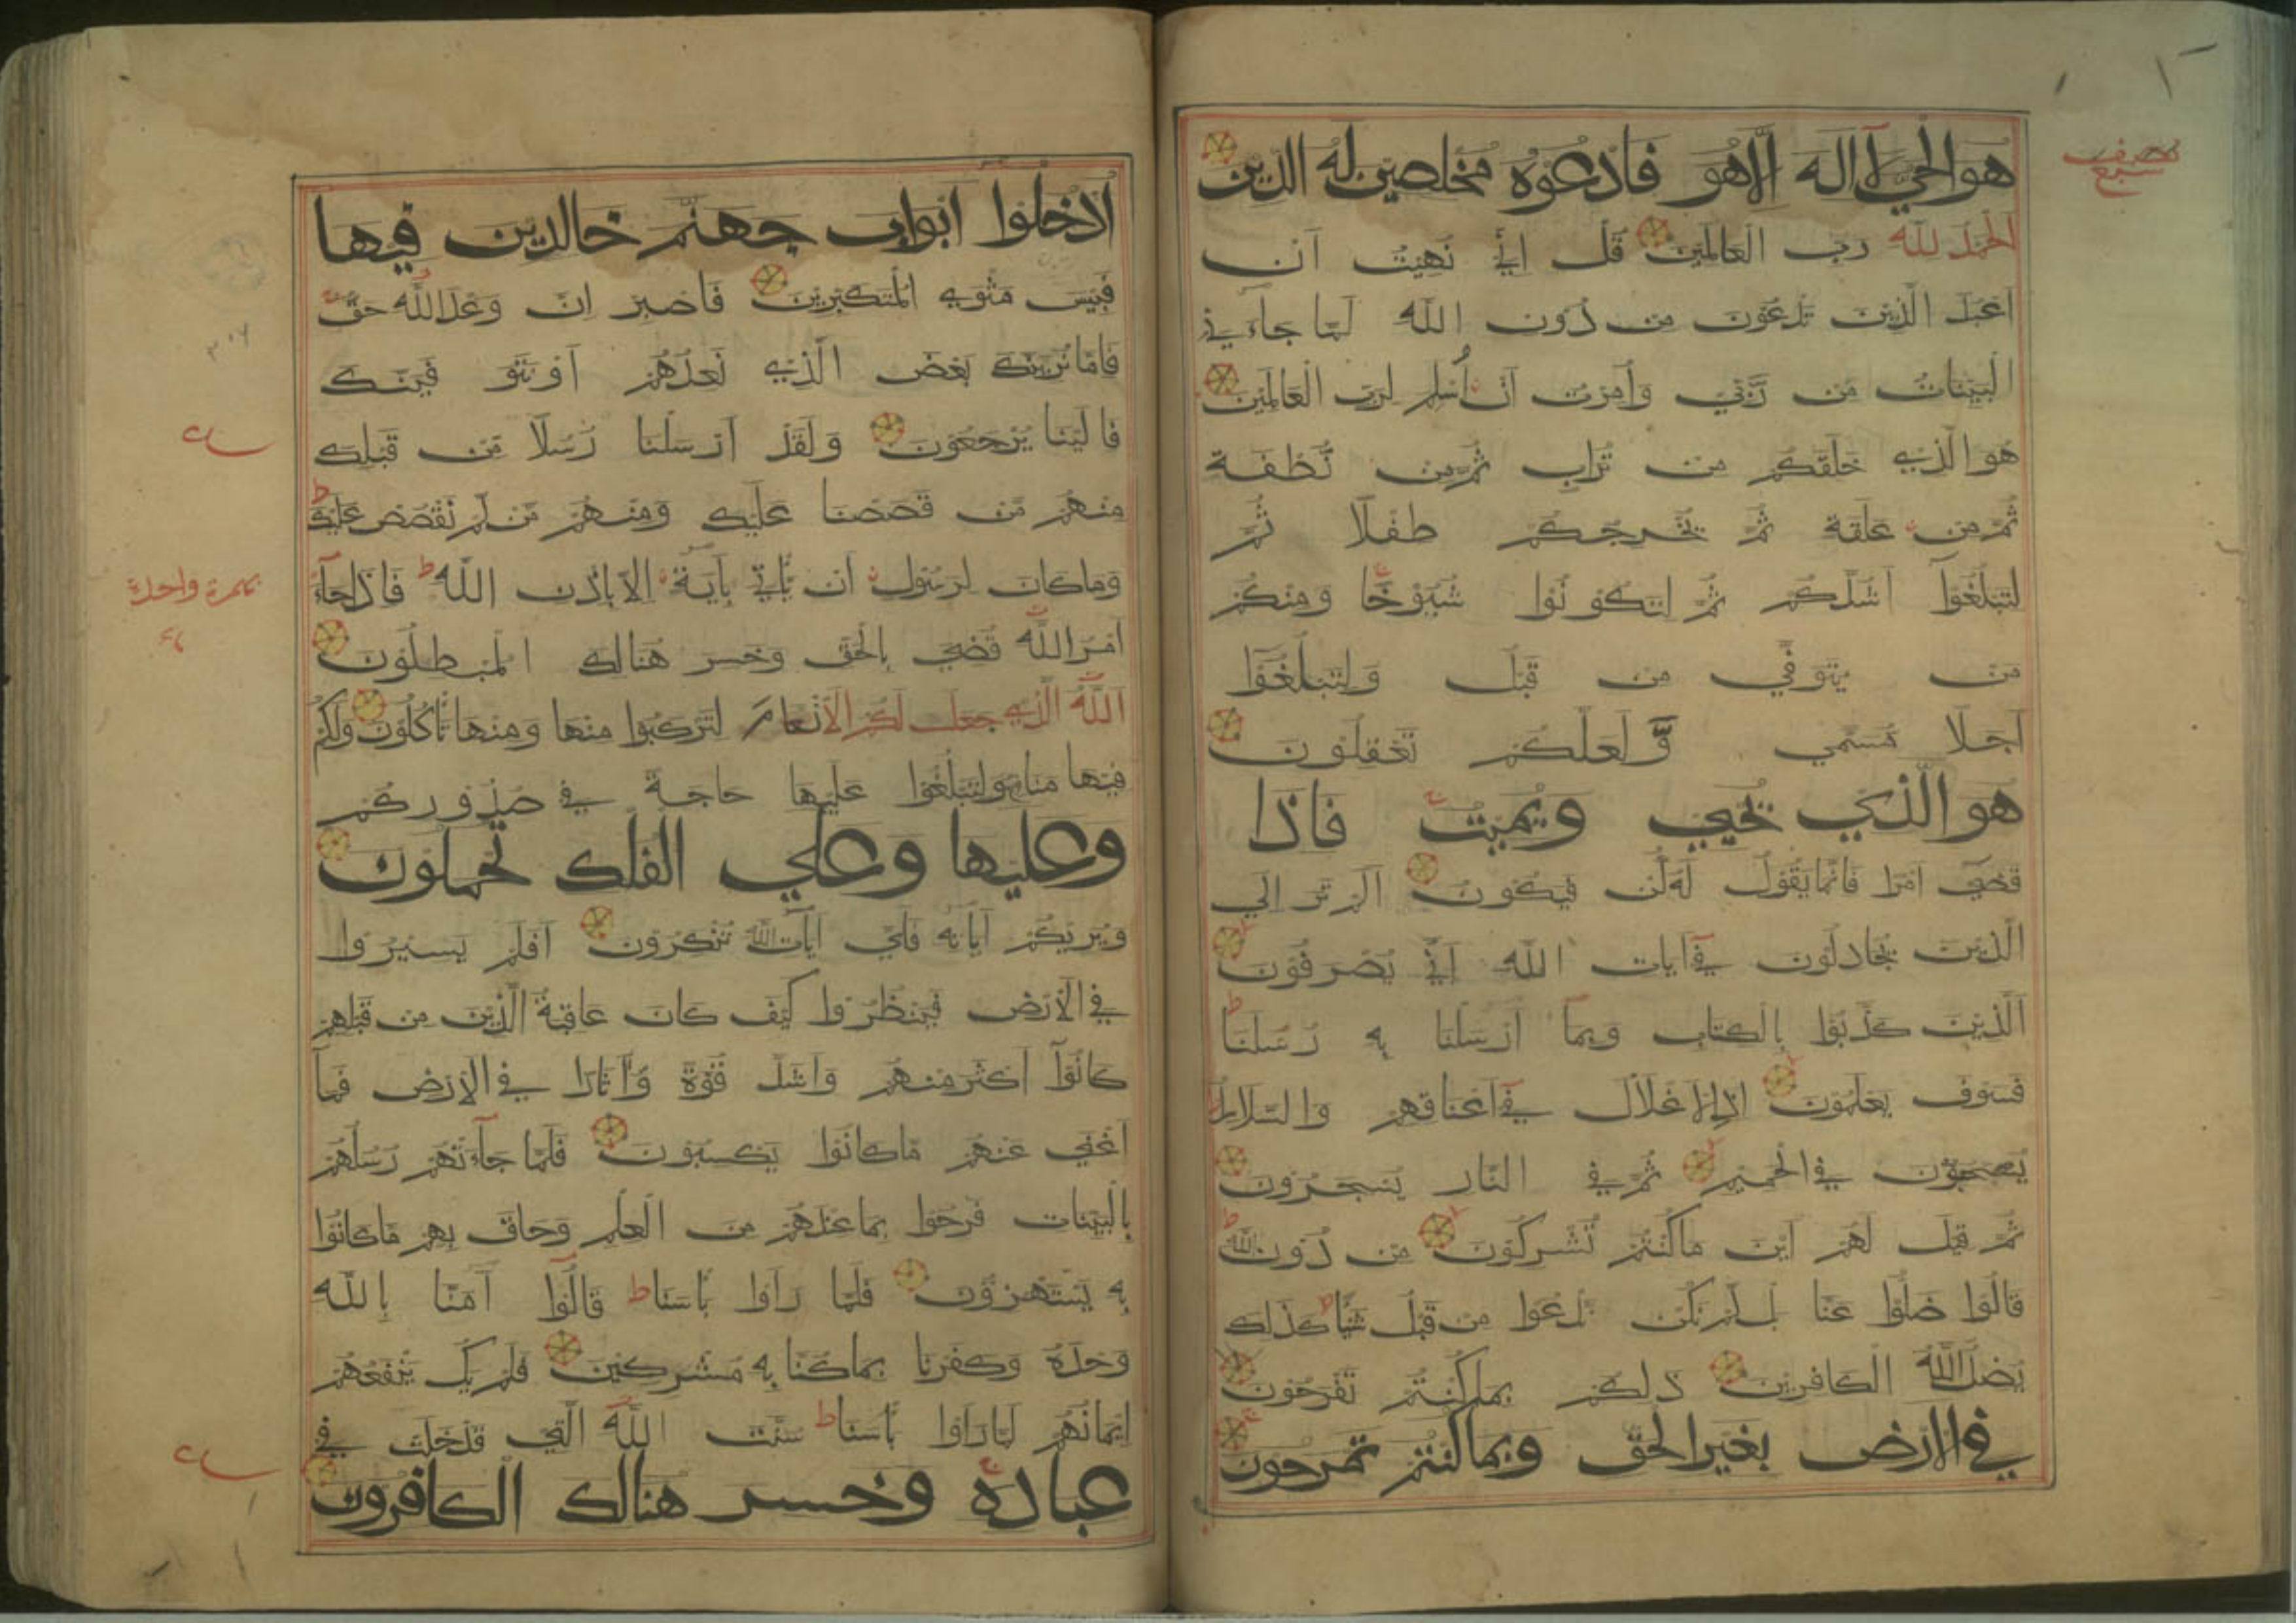 هو الحي لا اله الا هو فادعوه مخلصين له الدين
الحمد لله رب العالمين قل اني نهيت ان
اعبد الذين تدعون من دون الله لما جاءني
البينات من ربي وأمرت ان أسلم لرب العالمين
هو الذي خلقكم من تراب ثم من نطفة
ثم من علقة ثم يخرجكم طفلا ثم
لتبلغوا اشدكم ثم لتكونوا شيوخا ومنكم
من يتوفي من قبل ولتبلغوا
اجلا مسمي ولعلكم تعقلون
هو الذي يحيي ويميت فاذا
قضي امرا فانما يقول له كن فيكون الم تر الي
الذين يجادلون في آيات الله اني يصرفون
الذين كذبوا بالكتاب وبما ارسلنا به رسلنا
فسوف يعلمون اذ الاغلال في اعناقهم والسلاسل
يسحبون في الحميم ثم في النار يسجرون
ثم قيل لهم اين ماكنتم تشركون من دون الله
قالوا ضلوا عنا بل لم نكن ندعوا من قبل شيا كذلك
يضل الله الكافرين ذلكم بما كنتم تفرحون
في الارض بغير الحق وبما كنتم تمرحون
نصف سبع
ادخلوا ابواب جهنم خالدين فيها
فبيس مثوي المتكبرين فاصبر ان وعد الله حق
فاما نرينك بعض الذي نعدهم او نتوفينك
فالينا يرجعون ولقد ارسلنا رسلا من قبلك
منهم من قصصنا عليك ومنهم من لم نقصص عليك
وما كان لرسول ان يأتي بآية الا باذن الله فاذا جآء
امر الله قضي بالحق وخسر هنالك المبطلون
الله الذي جعل لكم الانعام لتركبوا منها ومنها تأكلون ولكم
فيها منافع ولتبلغوا عليها حاجة في صدوركم
وعليها وعلي الفلك تحملون
ويريكم آياته فاي آيات الله تنكرون افلم يسيروا
في الارض فينظروا كيف كان عاقبة الذين من قبلهم
كانوا اكثر منهم واشد قوة وآثارا في الارض فما
اغني عنهم ماكانوا يكسبون فلما جآءتهم رسلهم
بالبينات فرحوا بما عندهم من العلم وحاق بهم ماكانوا
به يستهزؤن فلما راوا بأسنا قالوا آمنا بالله
وحده وكفرنا بماكنا به مشركين فلم يك ينفعهم
ايمانهم لما راوا بأسنا سنت الله التي قد خلت في
عباده وخسر هنالك الكافرون